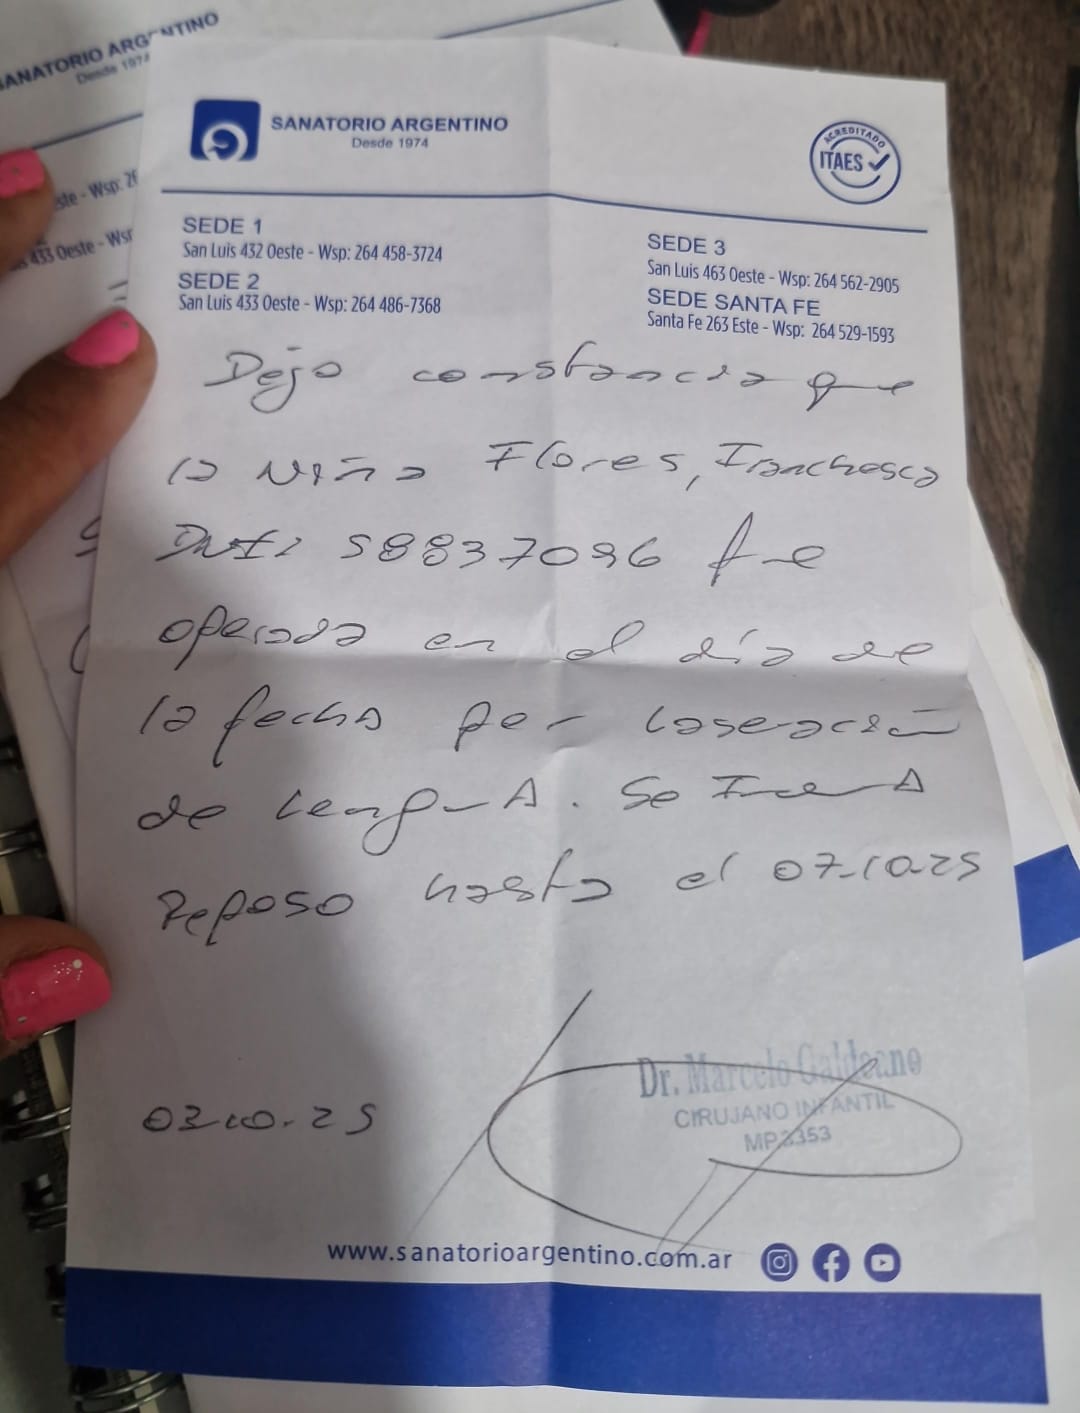 SANATORIO ARGENTINO
Desde 1974
SANATORIO ARGENTINO
Desde 1974
ACREDITADO
ITAES
SEDE 1
San Luis 432 Oeste - Wsp: 264 458-3724
SEDE 2
San Luis 433 Oeste - Wsp: 264 486-7368
SEDE 3
San Luis 463 Oeste - Wsp: 264 562-2905
SEDE SANTA FE
Santa Fe 263 Este - Wsp: 264 529-1593
ste - Wsp: 26
433 Oeste - Wsp
Dejo constancia que
la Niña Flores, Franchesca
DNI: 58837096 fue
operada en el día de
la fecha por laseración
de lengua. Se Indica
Reposo hasta el 07-10-25
03-10-25
Dr. Marcelo Galdeano
CIRUJANO INFANTIL
MP3353
www.sanatorioargentino.com.ar